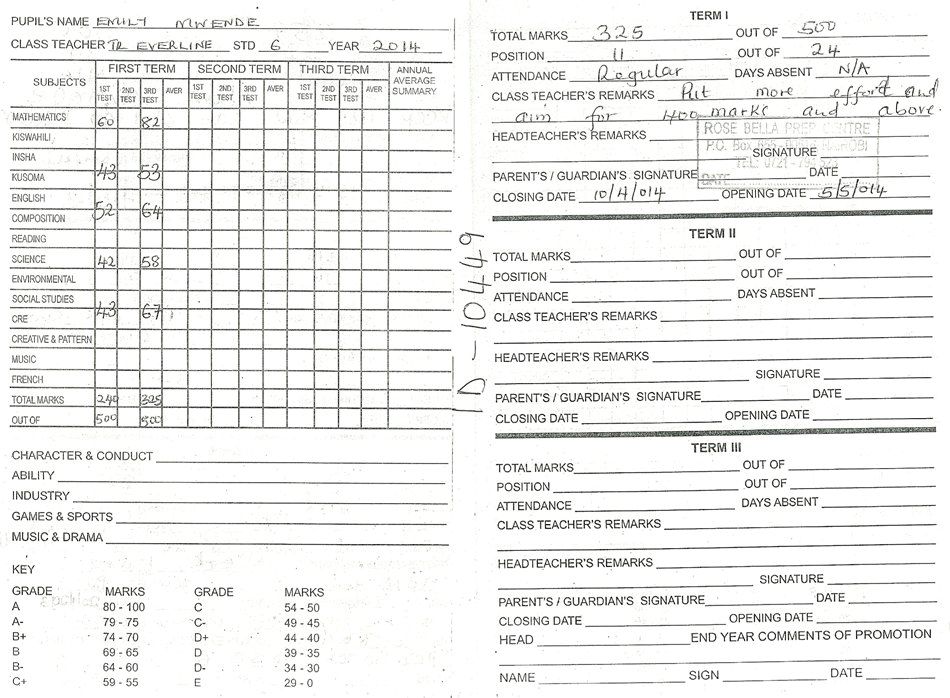 PUPIL'S NAME EMILY MWENDE
CLASS TEACHER TR EVERLINE STD 6 YEAR 2014
SUBJECTS FIRST TERM SECOND TERM THIRD TERM ANNUAL AVERAGE SUMMARY
1ST TEST 2ND TEST 3RD TEST AVER 1ST TEST 2ND TEST 3RD TEST AVER 1ST TEST 2ND TEST 3RD TEST AVER
MATHEMATICS 60 82
KISWAHILI
INSHA
KUSOMA 43 53
ENGLISH
COMPOSITION 52 64
READING
SCIENCE 42 58
ENVIRONMENTAL
SOCIAL STUDIES
CRE 43 67
CREATIVE & PATTERN
MUSIC
FRENCH
TOTAL MARKS 240 325
OUT OF 500 500
CHARACTER & CONDUCT
ABILITY
INDUSTRY
GAMES & SPORTS
MUSIC & DRAMA
KEY
GRADE MARKS GRADE MARKS
A 80 - 100 C 54 - 50
A- 79 - 75 C- 49 - 45
B+ 74 - 70 D+ 44 - 40
B 69 - 65 D 39 - 35
B- 64 - 60 D- 34 - 30
C+ 59 - 55 E 29 - 0
ID - 10449
TERM I
TOTAL MARKS 325 OUT OF 500
POSITION 11 OUT OF 24
ATTENDANCE Regular DAYS ABSENT N/A
CLASS TEACHER'S REMARKS Put more effort and
aim for 400 marks and above.
HEADTEACHER'S REMARKS
ROSE BELLA PREP CENTRE
P.O. Box
SIGNATURE
TEL: 0721
PARENT'S / GUARDIAN'S SIGNATURE DATE
DATE
CLOSING DATE 10/4/014 OPENING DATE 5/5/014
TERM II
TOTAL MARKS OUT OF
POSITION OUT OF
ATTENDANCE DAYS ABSENT
CLASS TEACHER'S REMARKS
HEADTEACHER'S REMARKS
SIGNATURE
PARENT'S / GUARDIAN'S SIGNATURE DATE
CLOSING DATE OPENING DATE
TERM III
TOTAL MARKS OUT OF
POSITION OUT OF
ATTENDANCE DAYS ABSENT
CLASS TEACHER'S REMARKS
HEADTEACHER'S REMARKS
SIGNATURE
PARENT'S / GUARDIAN'S SIGNATURE DATE
CLOSING DATE OPENING DATE
HEAD END YEAR COMMENTS OF PROMOTION
NAME SIGN DATE